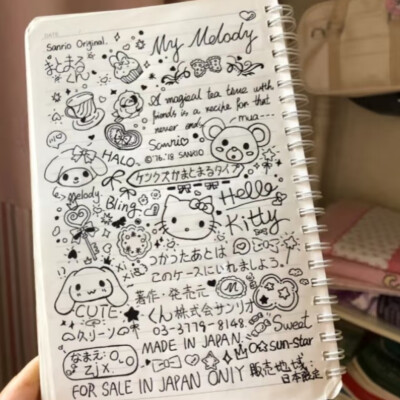 Sanrio Original.
My Melody
まとまる
A magical tea time with
friends is a recipe for that
never end
mua---
Sanrio
HALO
©'76.'18 SANRIO
ケシクズがまとまるタイプ
Melody
Bling
Hello
Kitty
つかったあとは
このケースにいれましょう。
著作・発売元
CUTE
クリーン
くん株式会社サンリオ
03-3779-8148.
Sweet
MADE IN JAPAN.
sun-star
なまえ:
Zjx.
FOR SALE IN JAPAN ONLY 販売地域:
日本限定